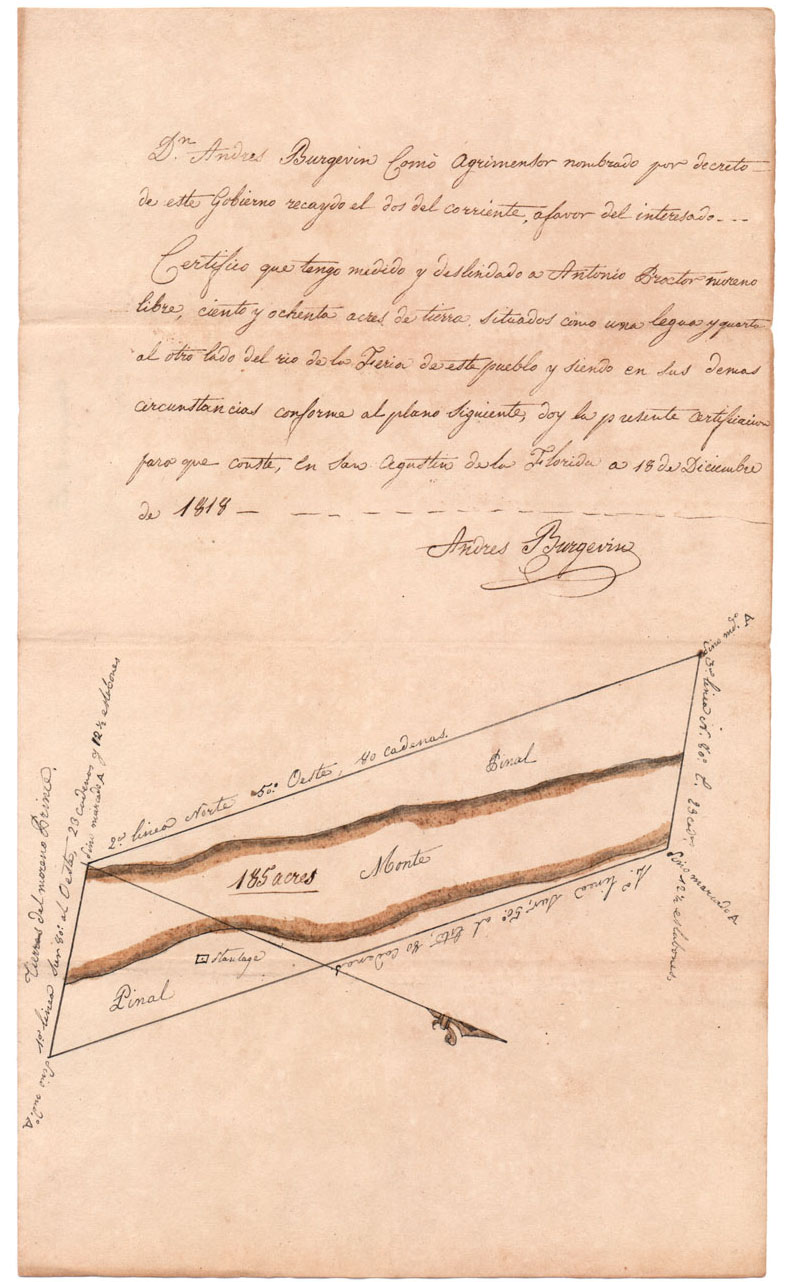 Dn. Andres Burgevin Como Agrimensor nombrado por decreto
de este Gobierno recaydo el dos del corriente, a favor del interesado
Certifico que tengo medido y deslindado a Antonio Proctor moreno
libre, ciento y ochenta acres de tierra situados como una legua y quarto
al otro lado del rio de la Feria de este pueblo y siendo en sus demas
circunstancias conforme al plano siguiente, doy la presente certificacion
para que conste, en San Agustin de la Florida a 18 de Diciembre
de 1818
Andres Burgevin
Tierras del moreno Prince.
1a. linea Sur 80o. al Oeste, 23 cadenas y 12 1/2 eslabones
Pino marcado A
2a. linea Norte 50o. Oeste, 80 cadenas.
3a. linea N. 80o. E. 23 cads. 12 1/2 eslabones,
Pino marcado A
4a. linea Sur, 50o. al Este, 80 cadenas
Pinal
Monte
185 acres
Pinal